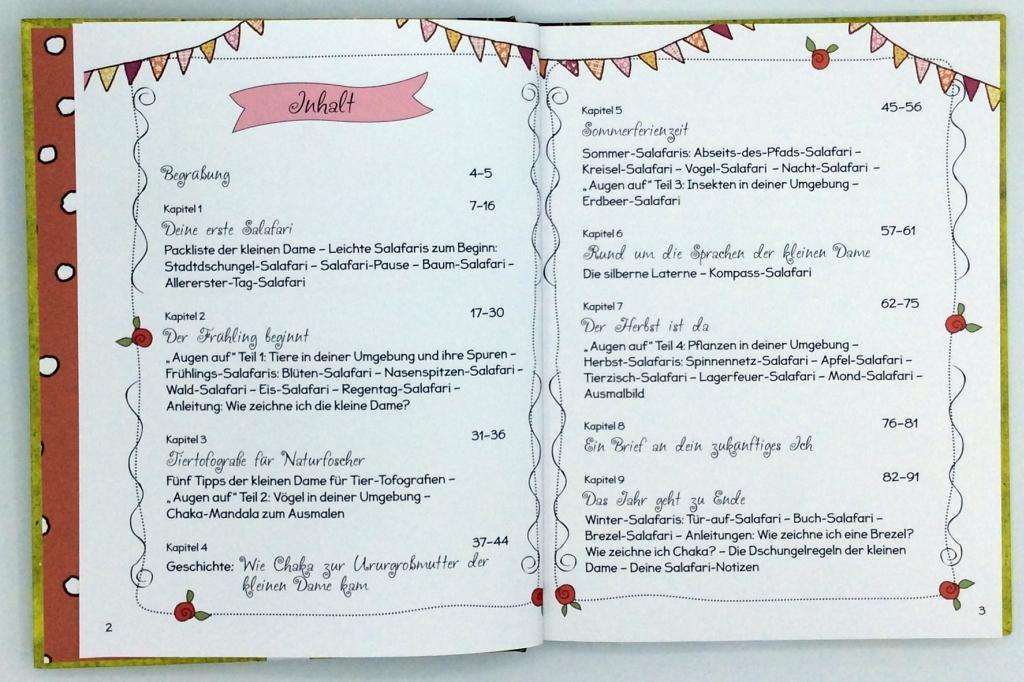 Inhalt
Begrabung 4–5
Kapitel 1 7–16
Deine erste Salafari
Packliste der kleinen Dame – Leichte Salafaris zum Beginn:
Stadtdschungel-Salafari – Salafari-Pause – Baum-Salafari –
Allererster-Tag-Salafari
Kapitel 2 17–30
Der Frühling beginnt
„Augen auf“ Teil 1: Tiere in deiner Umgebung und ihre Spuren –
Frühlings-Salafaris: Blüten-Salafari – Nasenspitzen-Salafari –
Wald-Salafari – Eis-Salafari – Regentag-Salafari –
Anleitung: Wie zeichne ich die kleine Dame?
Kapitel 3 31–36
Tiertofografie für Naturfoscher
Fünf Tipps der kleinen Dame für Tier-Tofografien –
„Augen auf“ Teil 2: Vögel in deiner Umgebung –
Chaka-Mandala zum Ausmalen
Kapitel 4 37–44
Geschichte: Wie Chaka zur Ururgroßmutter der
kleinen Dame kam
2
Kapitel 5 45–56
Sommerferienzeit
Sommer-Salafaris: Abseits-des-Pfads-Salafari –
Kreisel-Salafari – Vogel-Salafari – Nacht-Salafari –
„Augen auf“ Teil 3: Insekten in deiner Umgebung –
Erdbeer-Salafari
Kapitel 6 57–61
Rund um die Sprachen der kleinen Dame
Die silberne Laterne – Kompass-Salafari
Kapitel 7 62–75
Der Herbst ist da
„Augen auf“ Teil 4: Pflanzen in deiner Umgebung –
Herbst-Salafaris: Spinnennetz-Salafari – Apfel-Salafari –
Tierzisch-Salafari – Lagerfeuer-Salafari – Mond-Salafari –
Ausmalbild
Kapitel 8 76–81
Ein Brief an dein zukünftiges Ich
Kapitel 9 82–91
Das Jahr geht zu Ende
Winter-Salafaris: Tür-auf-Salafari – Buch-Salafari –
Brezel-Salafari – Anleitungen: Wie zeichne ich eine Brezel?
Wie zeichne ich Chaka? – Die Dschungelregeln der kleinen
Dame – Deine Salafari-Notizen
3